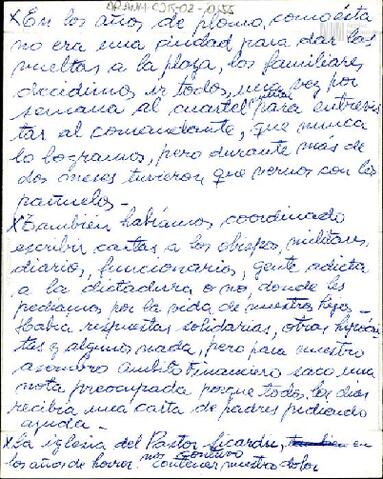 XEn los años de plomo, como ésta
no era una ciudad para dar las
vueltas a la plaza, los familiares
decidimos ir todos, una vez por
semana al cuartel para entrevis
tar al comandante, que nunca
lo logramos, pero durante más de
dos meses tuvieron que vernos con los
pañuelos -
XTambién habíamos coordinado
escribir cartas a los obispos, militares,
diarios, funcionarios, gente adicta
a la dictadura o no, donde les
pedíamos por la vida de nuestros hijos -
Había respuestas solidarias, otras
y algunos nada, pero para nuestro
asombro Ambito Financiero saco una
nota preocupada porque todos los días
recibía una carta de padres pidiendo
ayuda -
XLa iglesia del Pastor en
nos
los años de horror contener nuestro dolor